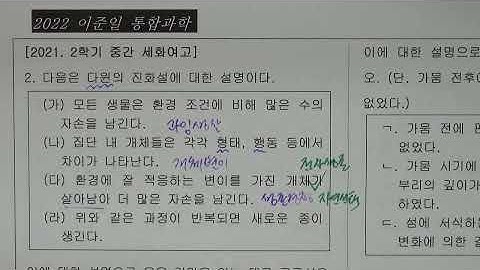 2022 이준일 통합과학
[2021. 2학기 중간 세화여고]
2. 다음은 다윈의 진화설에 대한 설명이다.
(가) 모든 생물은 환경 조건에 비해 많은 수의
자손을 남긴다. 과잉생산
(나) 집단 내 개체들은 각각 형태, 행동 등에서
차이가 나타난다. 개체변이
(다) 환경에 잘 적응하는 변이를 가진 개체가
살아남아 더 많은 자손을 남긴다. 생존경쟁 자연선택
(라) 위와 같은 과정이 반복되면 새로운 종이
생긴다.
이에 대한 설명으로
오. (단, 가뭄 전후에
없었다.)
ㄱ. 가뭄 전에 핀
없었다.
ㄴ. 가뭄 시기에
부리의 깊이가
하였다.
ㄷ. 섬에 서식하는
변화에 의한 결